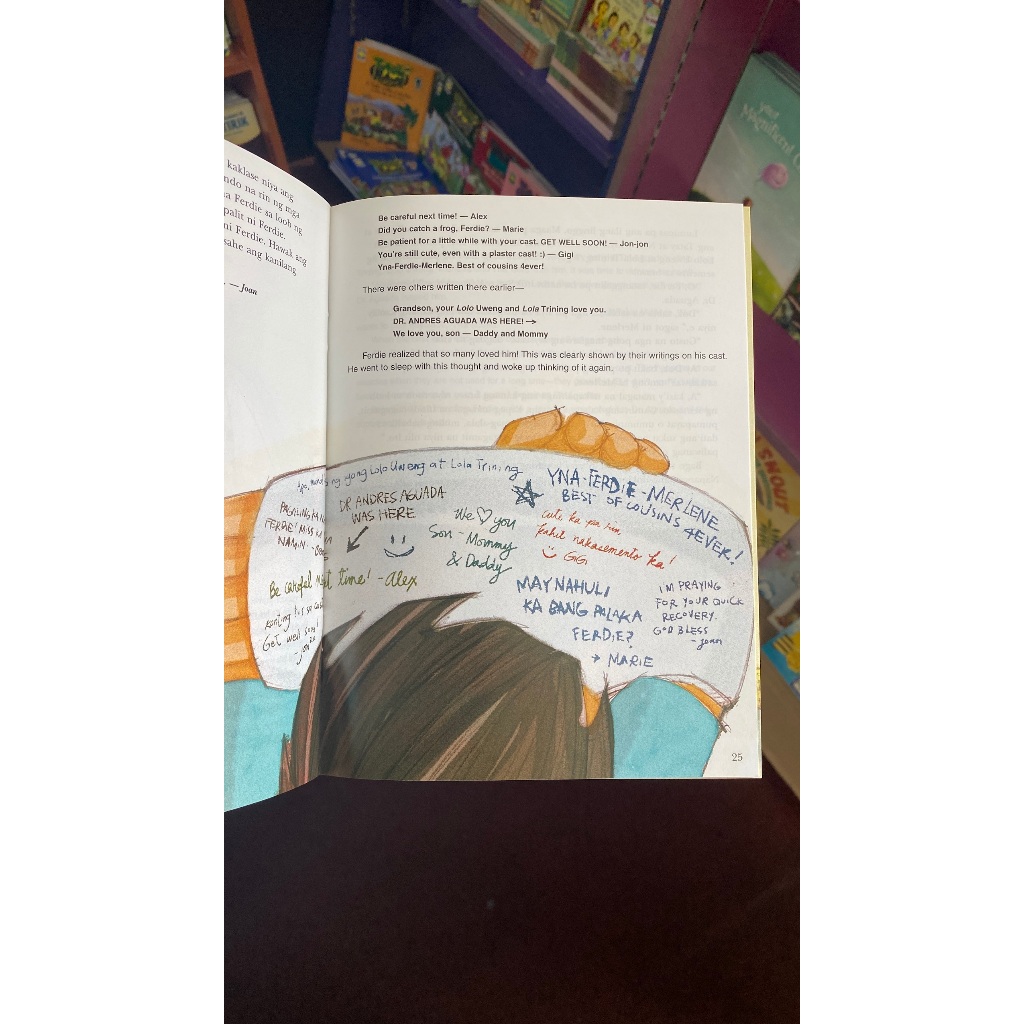 kaklase niya ang
ndo na rin ng mga
a Ferdie sa loob ng
palit ni Ferdie.
ni Ferdie. Hawak ang
sahe ang kanilang
— Joan
Be careful next time! — Alex
Did you catch a frog, Ferdie? — Marie
Be patient for a little while with your cast. GET WELL SOON! — Jon-jon
You're still cute, even with a plaster cast! :) — Gigi
Yna-Ferdie-Merlene. Best of cousins 4ever!
There were others written there earlier—
Grandson, your Lolo Uweng and Lola Trining love you.
DR. ANDRES AGUADA WAS HERE! →
We love you, son — Daddy and Mommy
Ferdie realized that so many loved him! This was clearly shown by their writings on his cast.
He went to sleep with this thought and woke up thinking of it again.
ng yong Lolo Uweng at Lola Trining
DR ANDRES AGUADA
WAS HERE
We ♡ you
Son - Mommy
& Daddy
YNA-FERDIE-MERLENE
BEST OF COUSINS 4EVER!
cute ka pa rin
kahit nakasemento ka!
GIGI
PAGALING KA
FERDIE! MISS KA
NAMIN.
Be careful next time! - Alex
Get well soon!
MAY NAHULI
KA BANG PALAKA
FERDIE?
→ MARIE
I'M PRAYING
FOR YOUR QUICK
RECOVERY.
GOD BLESS
- Joan
25
your
Magnificent
SNOUT